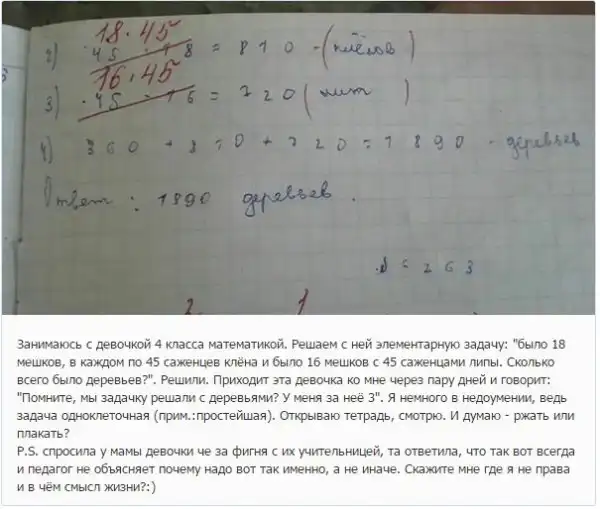 18·45
2) 45 · 18 = 810 - (клёнов)
16·45
3) 45 · 16 = 720 (лип)
4) 360 + 810 + 720 = 1890 - деревьев
Ответ : 1890 деревьев .
263
Занимаюсь с девочкой 4 класса математикой. Решаем с ней элементарную задачу: "было 18
мешков, в каждом по 45 саженцев клёна и было 16 мешков с 45 саженцами липы. Сколько
всего было деревьев?". Решили. Приходит эта девочка ко мне через пару дней и говорит:
"Помните, мы задачку решали с деревьями? У меня за неё 3". Я немного в недоумении, ведь
задача одноклеточная (прим.:простейшая). Открываю тетрадь, смотрю. И думаю - ржать или
плакать?
P.S. спросила у мамы девочки че за фигня с их учительницей, та ответила, что так вот всегда
и педагог не объясняет почему надо вот так именно, а не иначе. Скажите мне где я не права
и в чём смысл жизни?:)